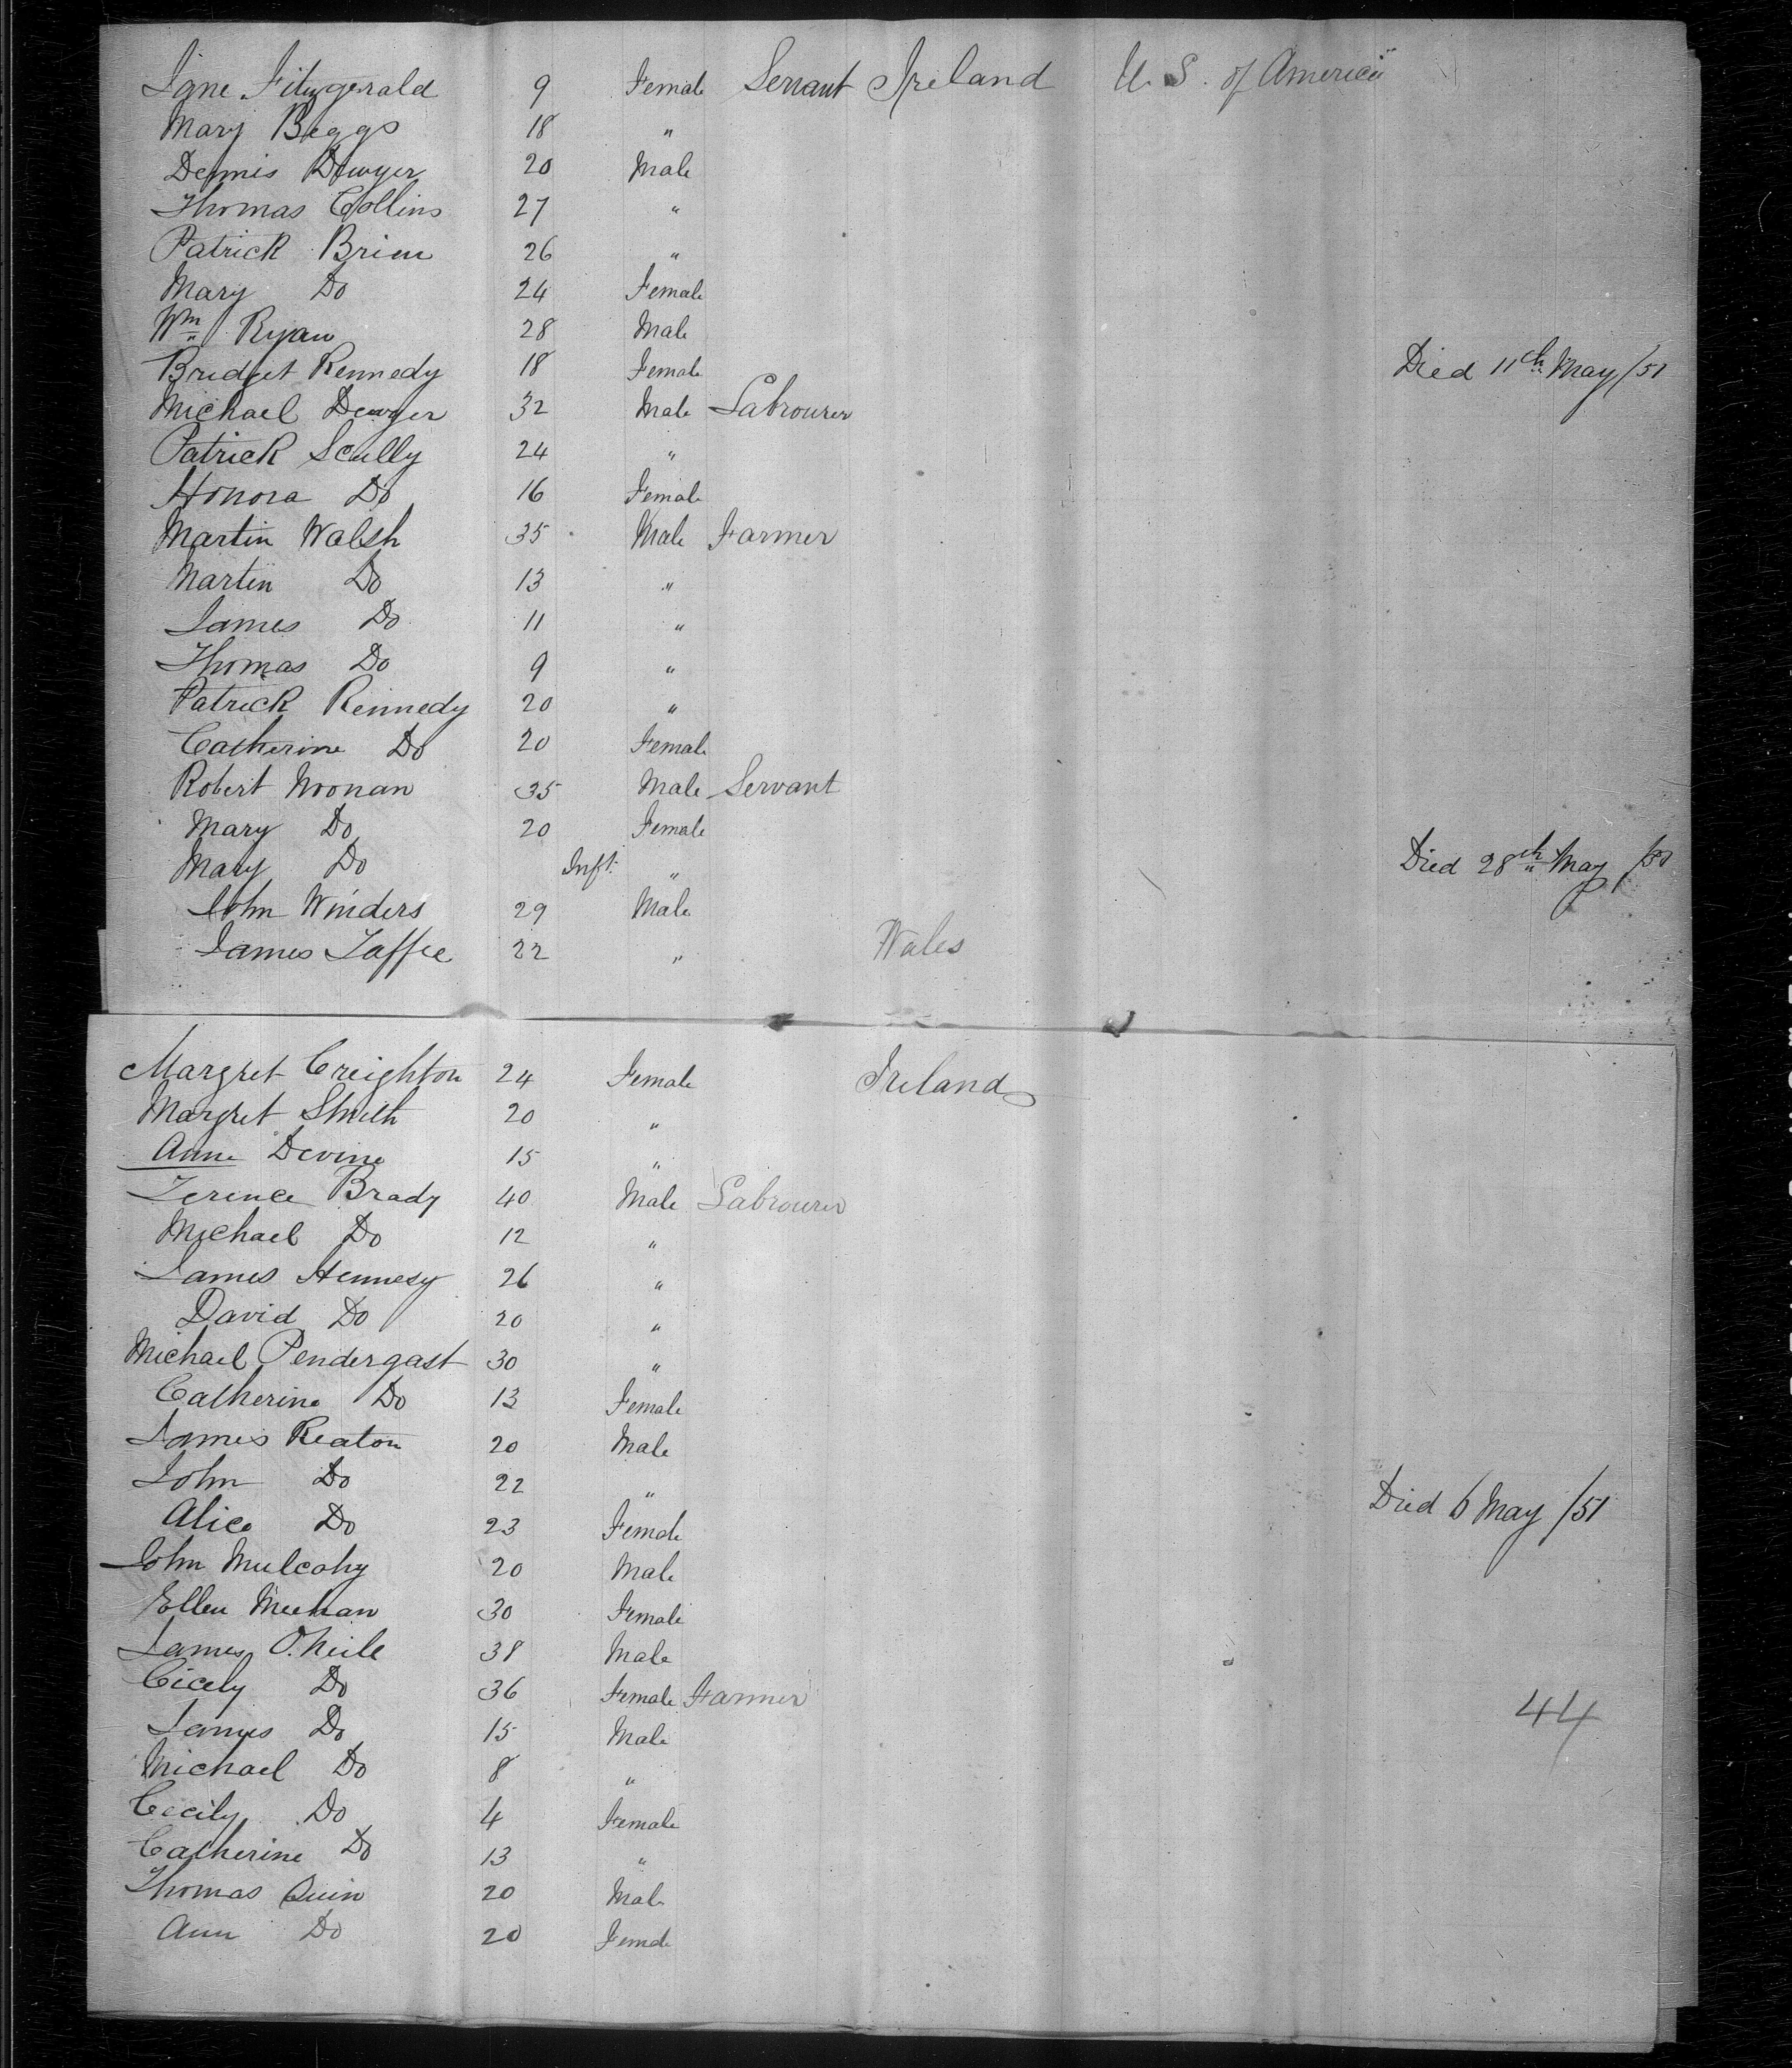 Jane Fitzgerald 9 Female Servant Ireland U. S. of America
Mary Beggs 18 "
Dennis Dwyer 20 Male
Thomas Collins 27 "
Patrick Brien 26 "
Mary Do 24 Female
Wm Ryan 28 Male
Bridget Kennedy 18 Female Died 11th May /51
Michael Dwyer 32 Male Labourer
Patrick Scully 24 "
Honora Do 16 Female
Martin Walsh 35 Male Farmer
Martin Do 13 "
James Do 11 "
Thomas Do 9 "
Patrick Kennedy 20 "
Catherine Do 20 Female
Robert Noonan 35 Male Servant
Mary Do 20 Female
Mary Do Inft. " Died 28th May /51
John Winders 29 Male
James Taffee 22 " Wales
Margret Creighton 24 Female Ireland
Margret Smith 20 "
Anne Devine 15 "
Terence Brady 40 Male Labourer
Michael Do 12 "
James Hennesy 26 "
David Do 20 "
Michael Pendergast 30 "
Catherine Do 13 Female
James Keaton 20 Male
John Do 22 "
Alice Do 23 Female Died 6 May /51
John Mulcahy 20 Male
Ellen Meehan 30 Female
James O.Neile 38 Male
Cicely Do 36 Female Farmer
James Do 15 Male 44
Michael Do 8 "
Cecily Do 4 Female
Catherine Do 13 "
Thomas Quin 20 Male
Ann Do 20 Female